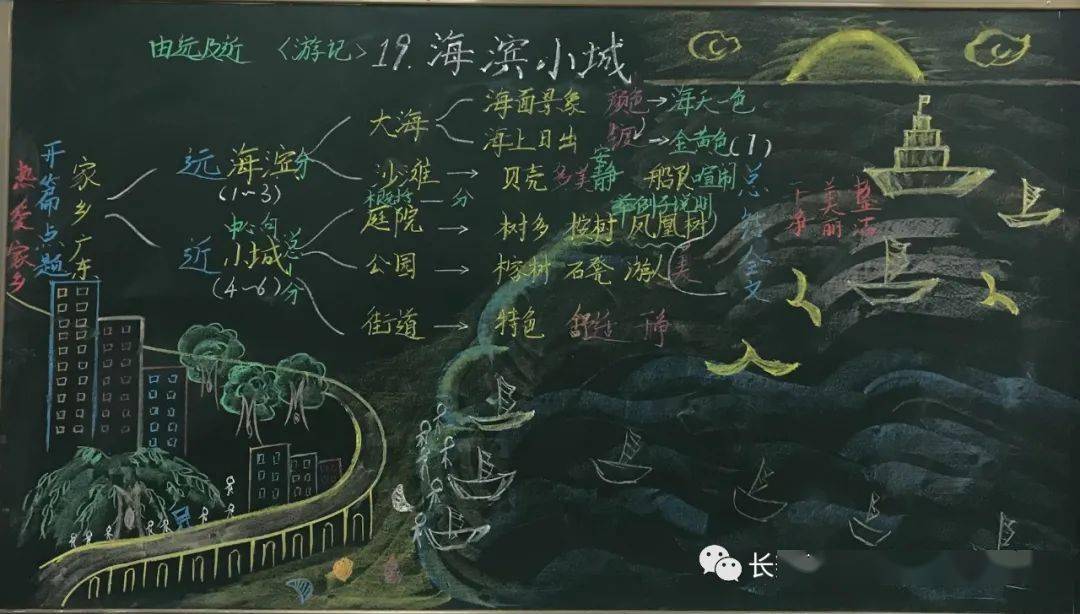 由远及近 〈游记〉 19. 海滨小城
大海 海面景象 颜色→海天一色
海上日出 →金黄色(7)
远 海滨 分 (1~3)
沙滩 → 贝壳 多 美 安静 船队 喧闹
热爱家乡
开篇点题
家乡广东
总结全文
美丽
整洁
分
举例子说明
近 小城 总分 (4~6)
庭院 → 树多 桉树 凤凰树
公园 → 榕树 石凳 游人 美
街道 → 特色 静
长